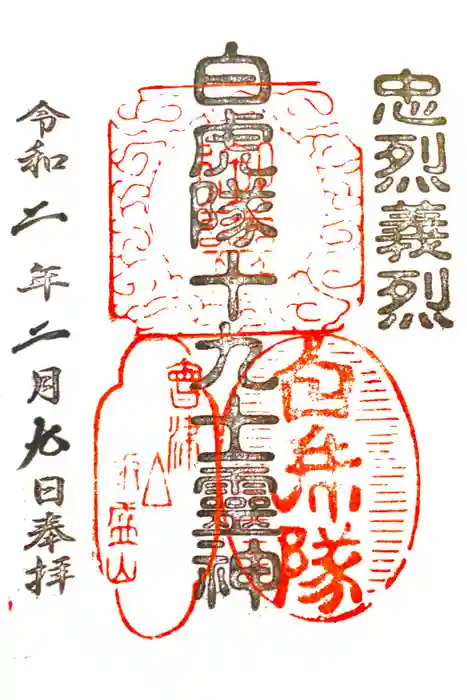 忠烈義烈
白虎隊十九士靈神
白虎隊
會津
飯盛山
令和二年二月九日奉拝